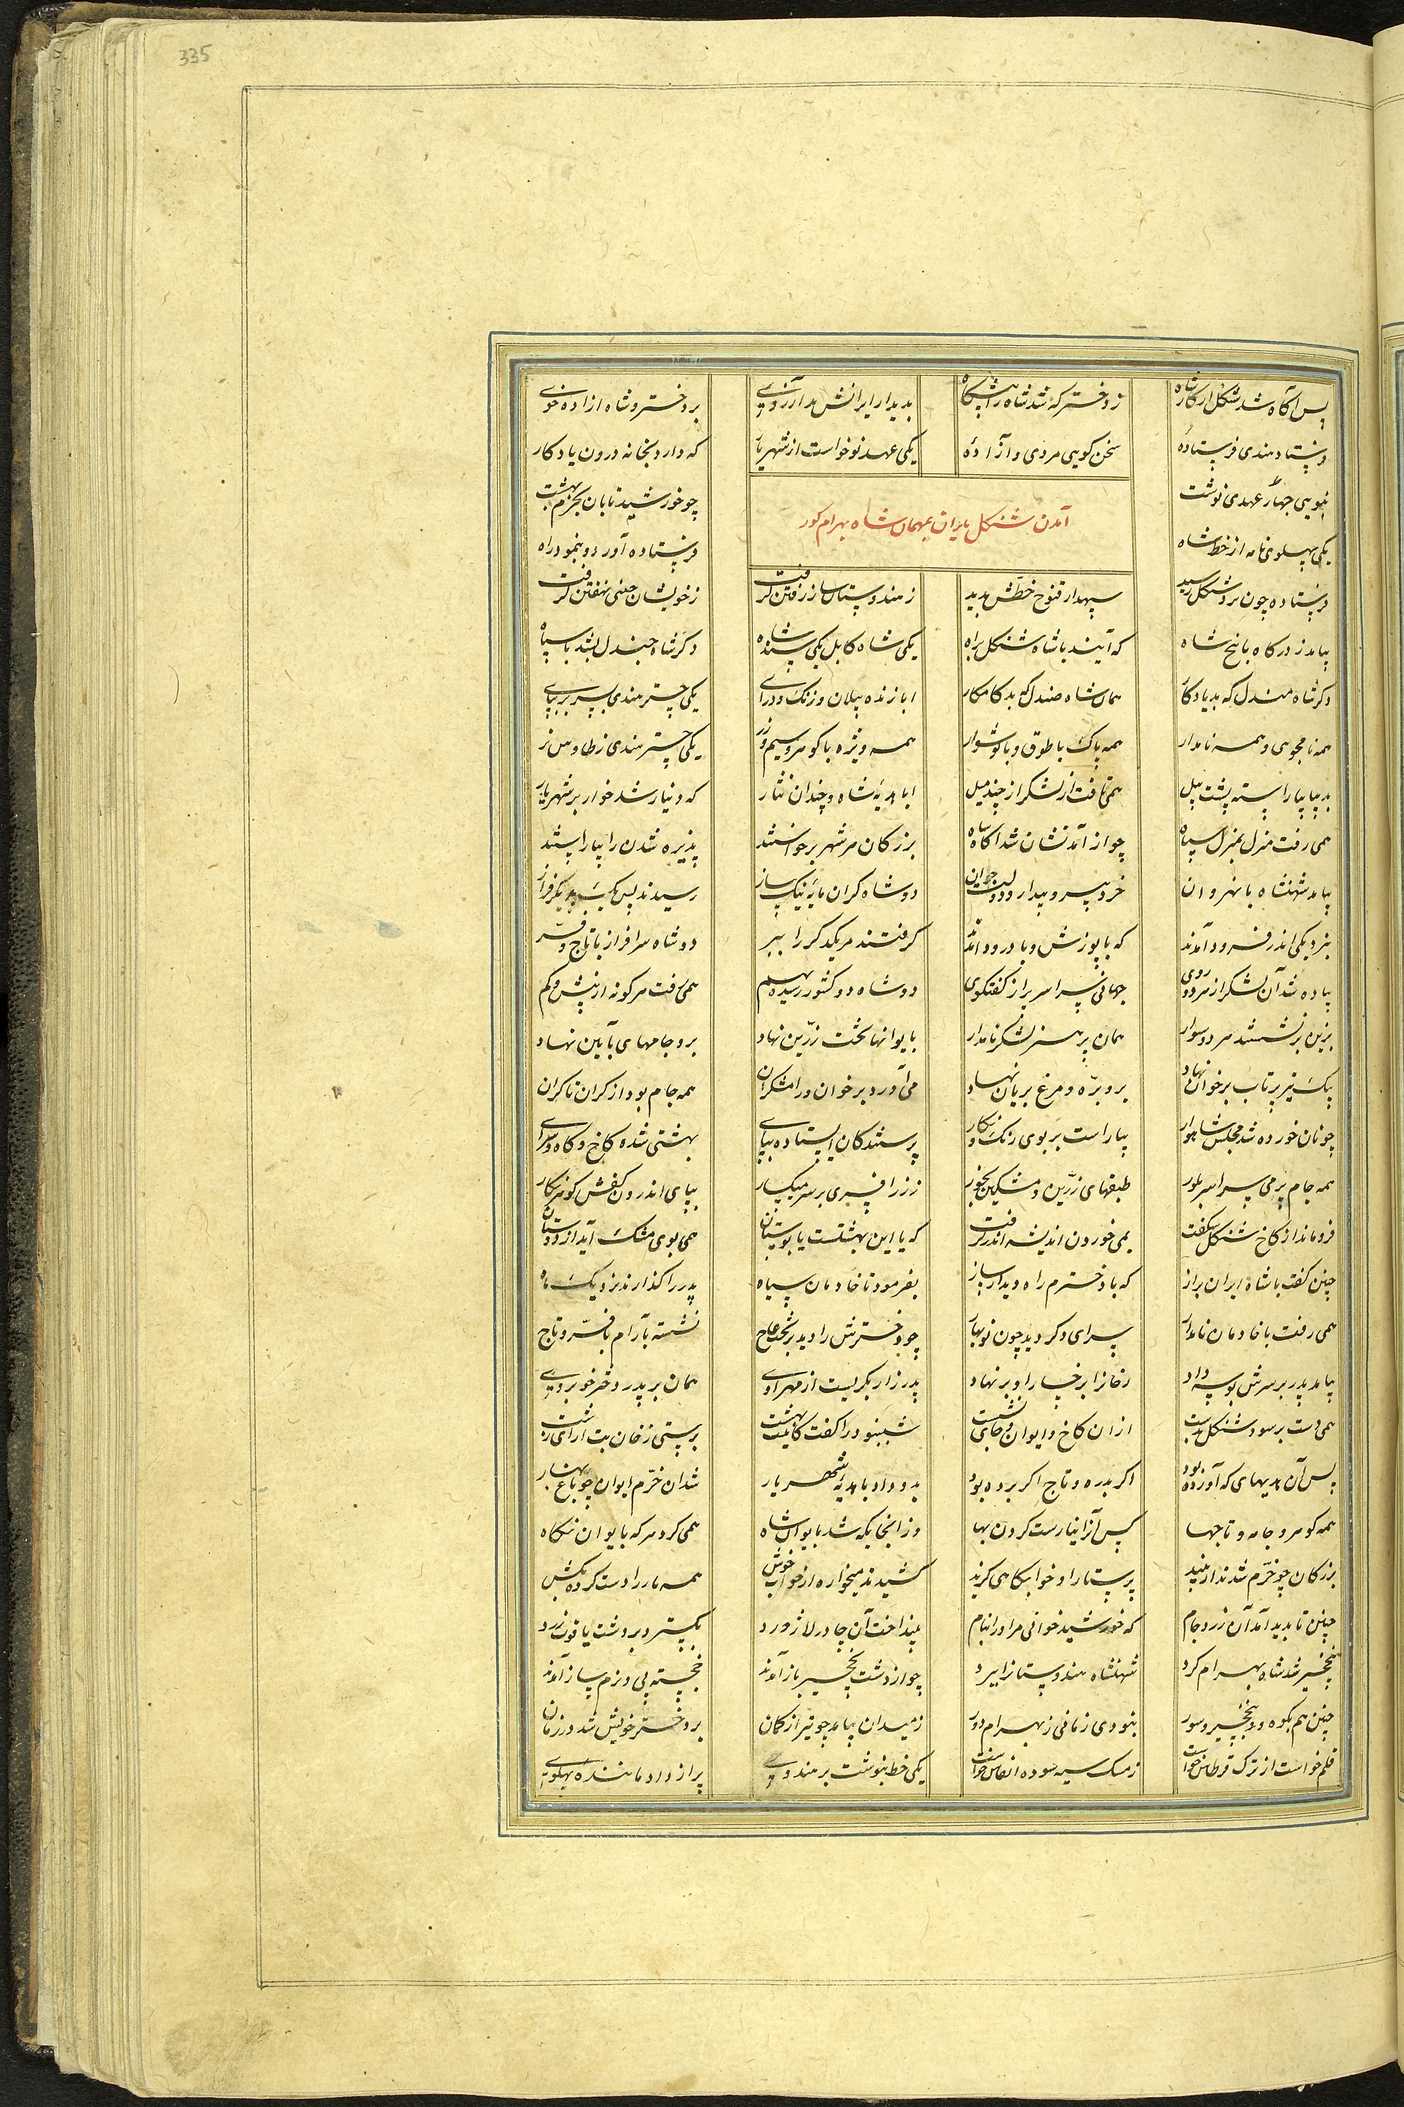 335
پس آگاه شد شنگل از کار شاه ز دختر که شد شاه را پیشگاه بدیدار ایرانش بد آرزوی بر دختر و شاه آزاده خوی
فرستاد هندی فرستادهٔ سخن گویی مردی و آزادهٔ یکی عهد نو خواست از شهریار که دارد بخانه درون یادگار
بنویی جهاندار عهدی نوشت چو خورشید تابان بخرم بهشت
آمدن شنگل بایران بمهمان شاه بهرام کور
یکی پهلوی نامه از خط شاه فرستاده آورد و بنمود راه
فرستاده چون نزد شنگل رسید سپهدار قنوج خطش بدید ز هندوستان ساز رفتن گرفت ز خویشان چینی نهفتن گرفت
بیامد ز درگاه با پنج شاه که آیند با شاه شنگل براه یکی شاه کابل یکی سند شاه دگر شاه جندل بشد با سپاه
دگر شاه مندل که بد یادگار همان شاه صندل که بد کامکار ابا زنده پیلان و زنگ و درای یکی چتر هندی بسر بر بپای
همه نامجوی و همه نامدار همه پاک با طوق و با گوشوار همه ویژه با گوهر و سیم و زر یکی چتر هندی ز طاوس نر
بدیبا بیاراسته پشت پیل همی تافت آن لشکر از چند میل ابا هدیهٔ شاه و چندان نثار که دینار شد خوار بر شهریار
همی رفت منزل بمنزل سپاه چو از آمدنشان شد آگاه شاه بزرگان هر شهر برخواستند پذیره شدن را بیاراستند
بیامد شهنشاه با نهروان خرد پیر و بیدار و دولت جوان دو شاه گران مایهٔ نیک ساز رسیدند پس یک بدیگر فراز
بنزدیکی اندر فرود آمدند که با پوزش و با درود آمدند گرفتند مر یکدگر را ببر دو شاه سرافراز با تاج و فر
پیاده شد آن لشکر از هر دو روی جهانی سراسر پر از گفتگوی دو شاه دو کشور رسیده بهم همی رفت هر گونه از بیش و کم
بزین برنشستند هر دو سوار همان پر هنر لشکر نامدار بایوانها تخت زرین نهاد برو جامهای بآیین نهاد
یک تیر پرتاب بر خوان نهاد برو بره و مرغ بریان نهاد می آورد بر خوان و رامشگران همه جام بود از کران تا کران
چو نان خورده شد مجلس شاهوار بیاراست بر بوی و رنگ و نگار پرستندگان ایستاده بپای بهشتی شده کاخ و گاه و سرای
همه جام پر می سراسر بلور طبقهای زرین و مشکین بخور ز زر افسری بر سر میگسار بپای اندرون کفش گوهر نگار
فرو ماند از کاخ شنگل شگفت بمی خوردن اندیشه اندر گرفت که یا این بهشتست یا بوستان همی بوی مشک آید از دوستان
چنین گفت با شاه ایران براز که با دخترم راه دیدار ساز بفرمود تا خادمان سپاه پدر را گذارند نزدیک ماه
همی رفت با خادمان نامدار سرای دگر دید چون نوبهار چو دخترش را دید بر تخت عاج نشسته بآرام با فر و تاج
بیامد پدر بر سرش بوسه داد رخانرا برخسار او بر نهاد پدر زار بگریست از مهر اوی همان بر پدر دختر خوبروی
همی دست بر سود شنگل بدست ازان کاخ و ایوان و جای نشست
پس آن هدیهای که آورده بود اگر بدره و تاج اگر برده بود بدو داد با هدیهٔ شهریار شد آن خرم ایوان چو باغ بهار
همه گوهر و جامه و تاجها کس آنرا نیارست کردن بها وز آنجایگه شد بایوان شاه همی کرد هر که بایوان نگاه
بزرگان چو خرم شدند از نبید پرستار او خوابگاهی گزید کشیدند میخواره از خواب خوش همه ناز را دست کرده بکش
چنین تا بدید آمد آن زرد جام که خورشید خوانی مر او را بنام بینداخت آن چادر لاژورد بگسترد بر دشت یاقوت زرد
بنخچیر شد شاه بهرام گرد شهنشاه هندوستانرا ببرد چو از دشت نخچیر باز آمدند خجسته پی و بزم ساز آمدند
چنین هم بکوه و بنخچیر و سور نبودی زمانی ز بهرام دور ز میدان بیامد چو تیر از کمان بر دختر خویش شد در زمان
قلم خواست از ترک و قرطاس خواست ز مشک سیه سوده انقاس خواست یکی خط بنوشت بر هندوی پر از داد مانندهٔ پهلوی